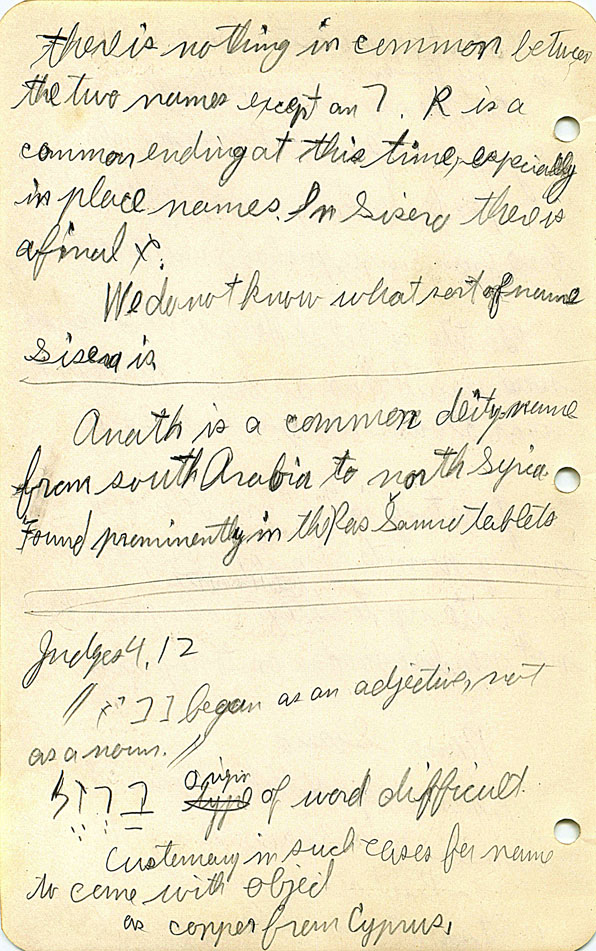 there is nothing in common between
the two names except an ר. R is a
common ending at this time, especially
in place names. In Sisera there is
a final א.
We do not know what sort of name
Sisera is
Anath is a common deity-name
from south Arabia to north Syria
Found prominently in th Ras Šamra tablets
Judges 4, 12
// נביא began as an adjective, not
as a noun. //
בַרְזֶל origin of word difficult.
Customary in such cases for name
to come with object
as copper from Cyprus.